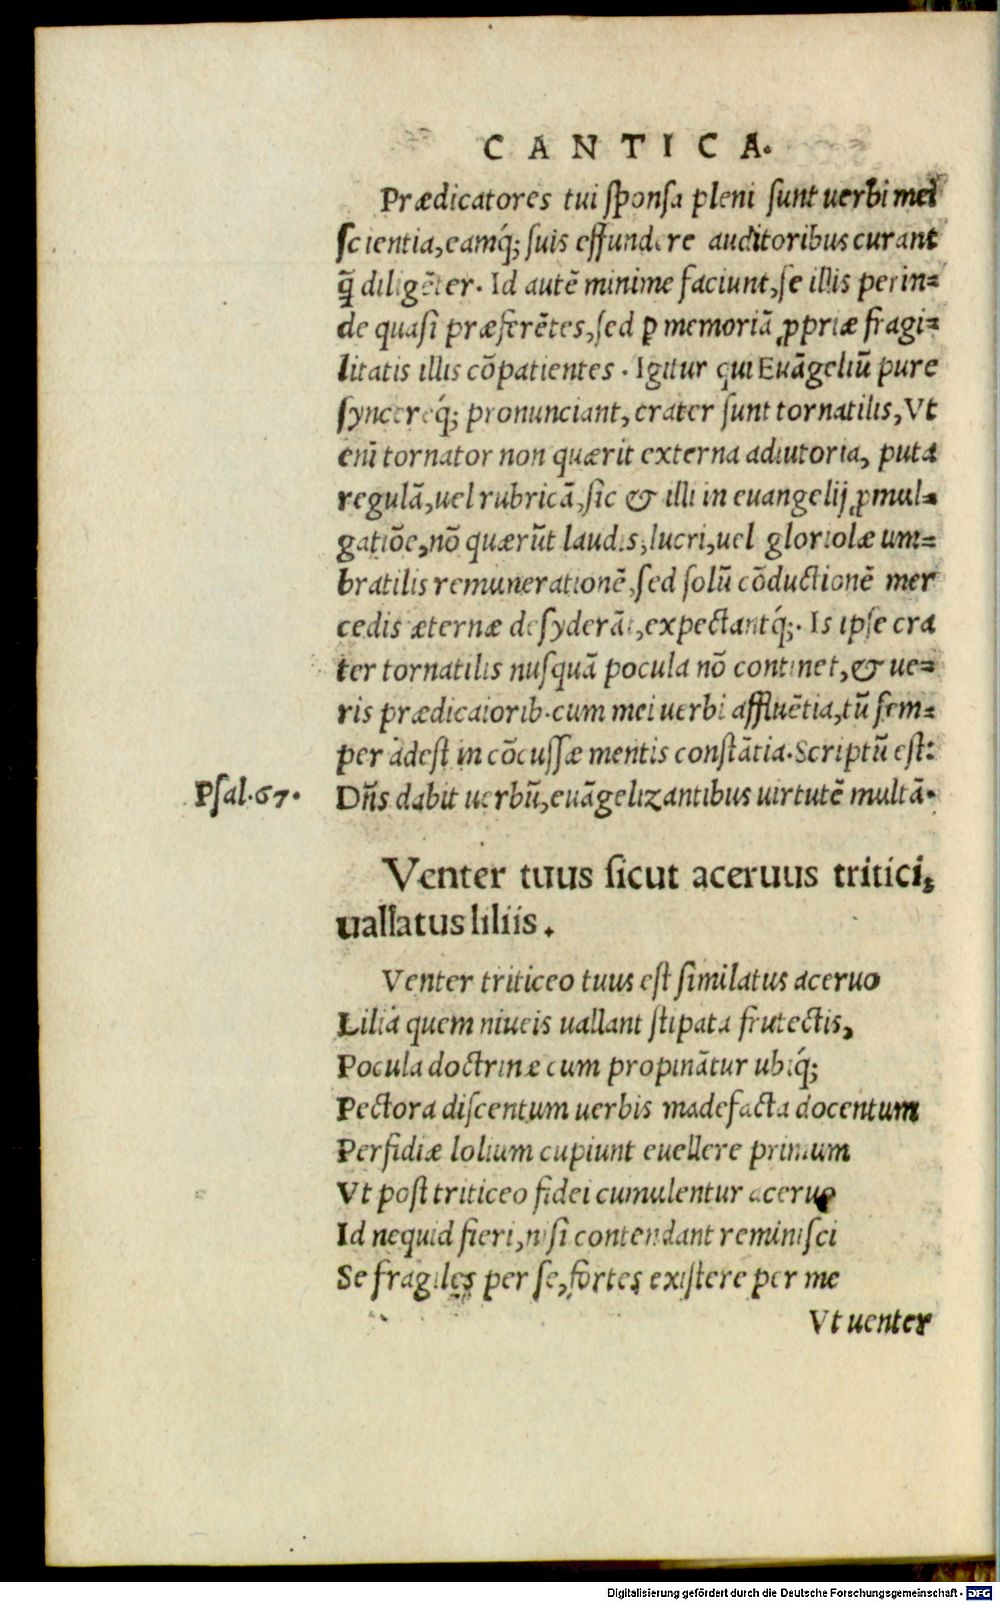 CANTICA.
Prædicatores tui ſponſa pleni ſunt uerbi mei
ſcientia, eamq́; ſuis effundere auditoribus curant
q̃ diligẽter. Id autẽ minime faciunt, ſe illis perin=
de quaſi præferẽtes, ſed ꝑ memoriã ꝓpriæ fragi=
litatis illis cõpatientes. Igitur qui Euãgeliũ pure
syncereq́; pronunciant, crater ſunt tornatilis, Vt
enĩ tornator non quærit externa adiutoria, puta
regulã, uel rubricã, ſic & illi in euangelij ꝓmul=
gatiõe, nõ quærũt laudis, lucri, uel gloriolæ um=
bratilis remunerationẽ, ſed ſolũ cõductionẽ mer
cedis æternæ deſyderãt, expectantq́;. Is ipſe cra
ter tornatilis nuſquã pocula nõ continet, & ue=
ris prædicatorib. cum mei uerbi affluẽtia, tũ ſem=
per adeſt in cõcuſſæ mentis conſtãtia. Scriptũ eſt:
Pſal.67. Dñs dabit uerbũ, euãgelizantibus uirtutẽ multã.
Venter tuus ſicut aceruus tritici,
uallatus liliis.
Venter triticeo tuus eſt ſimilatus aceruo
Lilia quem niueis uallant ſtipata frutectis,
Pocula doctrinæ cum propinãtur ubiq́;
Pectora diſcentum uerbis madefacta docentum
Perfidiæ lolium cupiunt euellere primum
Vt poſt triticeo fidei cumulentur aceruo
Id nequid fieri, niſi contendant reminiſci
Se fragiles per ſe, fortes exiſtere per me
Vt uenter
Digitalisierung gefördert durch die Deutsche Forschungsgemeinschaft - DFG